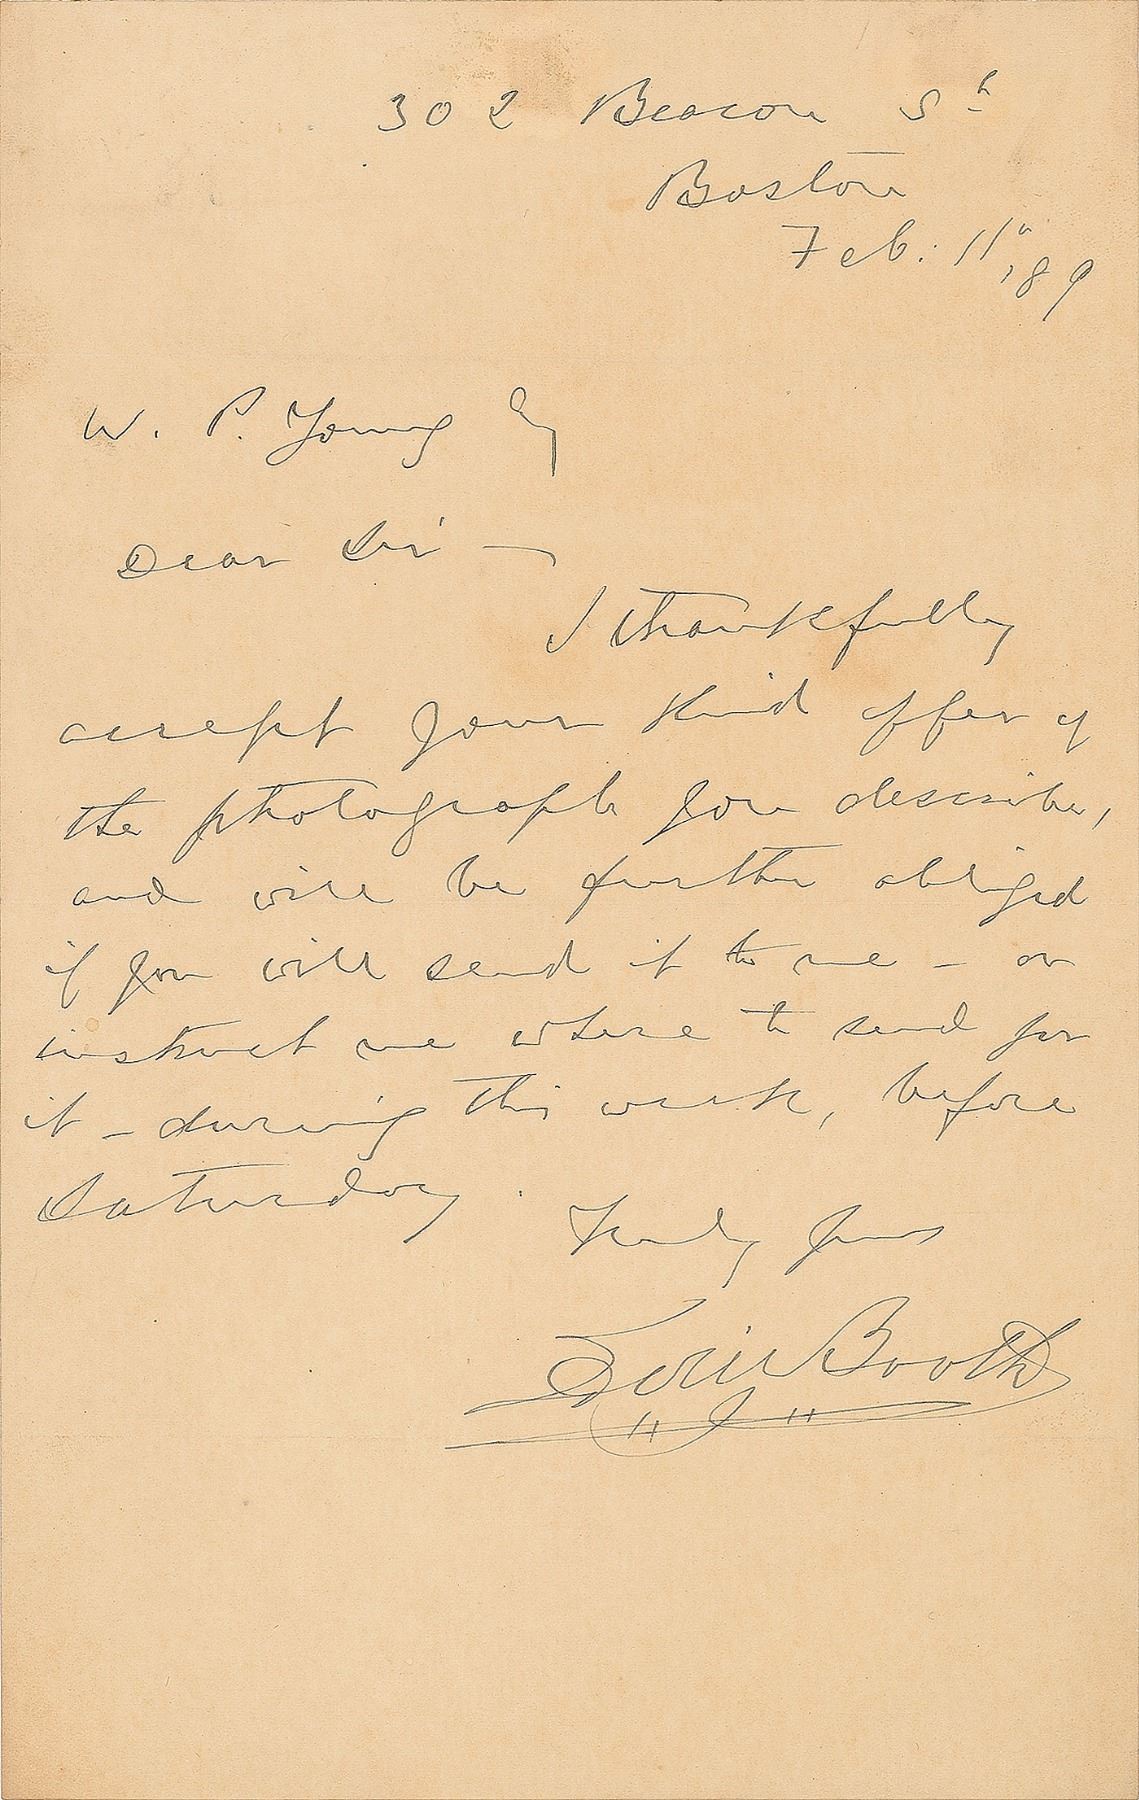 302 Beacon St
Boston
Feb: 11th, 89
W. P. Young Esq
Dear Sir —
I thankfully
accept your kind offer of
the photograph you describe,
and will be further obliged
if you will send it to me – or
instruct me where to send for
it – during this week, before
Saturday.
Truly yours
Edwin Booth